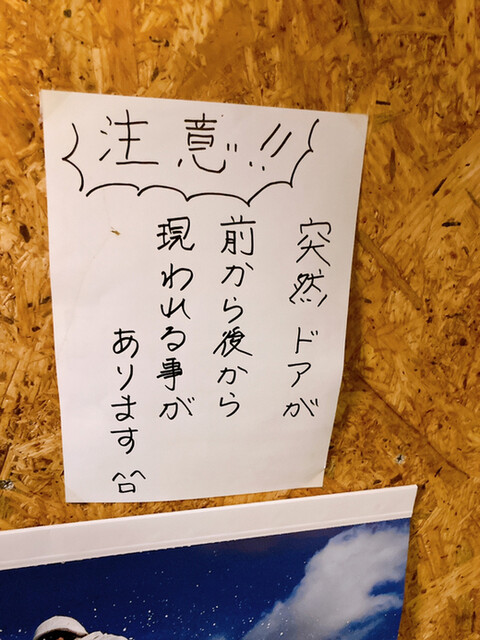 注意!!
突然ドアが
前から後から
現われる事が
あります ^^